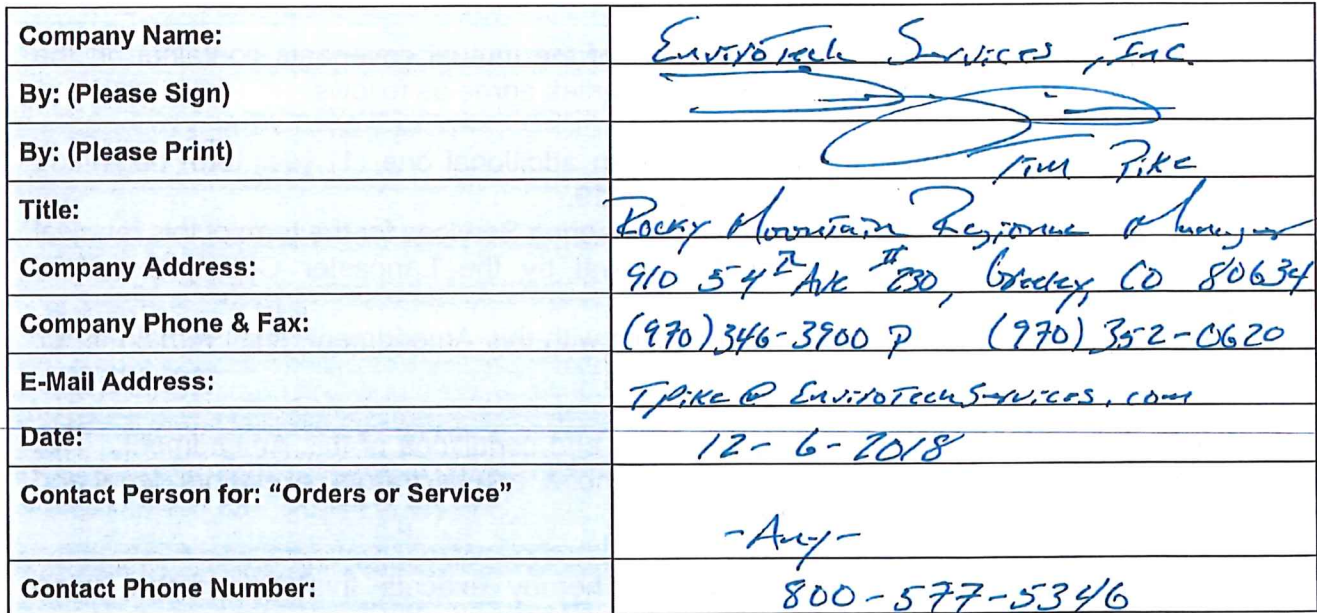 Company Name: EnviroTech Services, Inc.
By: (Please Sign)
By: (Please Print) Tim Pike
Title: Rocky Mountain Regional Manager
Company Address: 910 54th Ave #230, Greeley, CO 80634
Company Phone & Fax: (970) 346-3900 P (970) 352-0620
E-Mail Address: Tpike@EnviroTechServices.com
Date: 12-6-2018
Contact Person for: “Orders or Service”
-Any-
Contact Phone Number: 800-577-5346